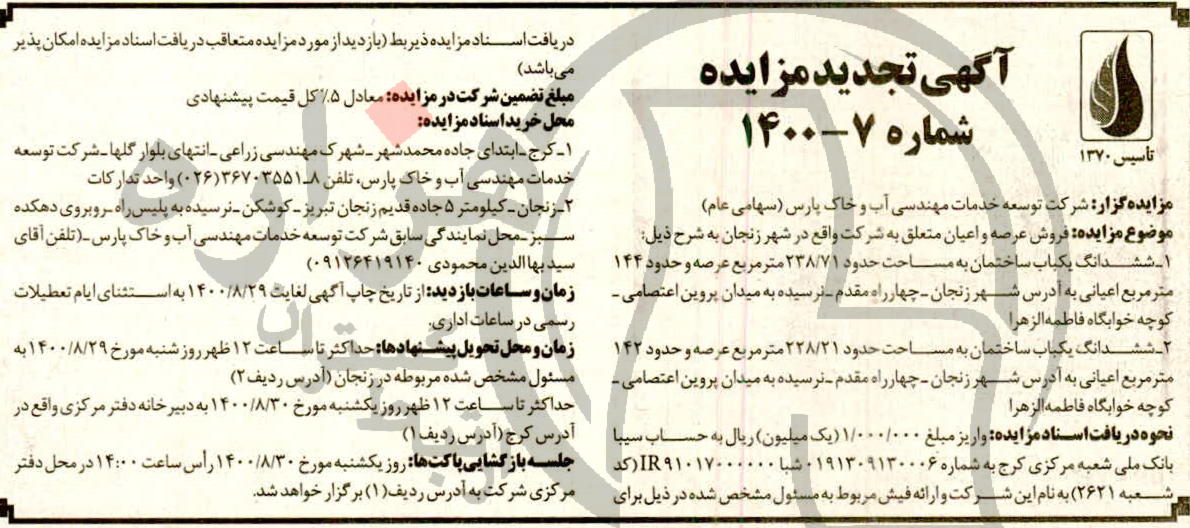 آگهی تجدید مزایده
شماره ۷-۱۴۰۰
تاسیس ۱۳۷۰
مزایده‌گزار: شرکت توسعه خدمات مهندسی آب و خاک پارس (سهامی عام)
موضوع مزایده: فروش عرصه و اعیان متعلق به شرکت واقع در شهر زنجان به شرح ذیل:
۱ـ ششدانگ یکباب ساختمان به مساحت حدود ۲۳۸/۷۱ متر مربع عرصه و حدود ۱۴۴
مترمربع اعیانی به آدرس شهر زنجان ـ چهارراه مقدم ـ نرسیده به میدان پروین اعتصامی ـ
کوچه خوابگاه فاطمه‌الزهرا
۲ـ ششدانگ یکباب ساختمان به مساحت حدود ۲۲۸/۲۱ متر مربع عرصه و حدود ۱۴۲
مترمربع اعیانی به آدرس شهر زنجان ـ چهارراه مقدم ـ نرسیده به میدان پروین اعتصامی ـ
کوچه خوابگاه فاطمه‌الزهرا
نحوه دریافت اسناد مزایده: واریز مبلغ ۱/۰۰۰/۰۰۰ (یک میلیون) ریال به حساب سیبا
بانک ملی شعبه مرکزی کرج به شماره ۰۱۹۱۳۰۹۱۳۰۰۰۶ شبا IR۹۱۰۱۷۰۰۰۰۰۰ (کد
شعبه ۲۶۲۱) به نام این شرکت و ارائه فیش مربوط به مسئول مشخص شده در ذیل برای
دریافت اسناد مزایده ذیربط (بازدید از مورد مزایده متعاقب دریافت اسناد مزایده امکان پذیر
می‌باشد)
مبلغ تضمین شرکت در مزایده: معادل ۵٪ کل قیمت پیشنهادی
محل خرید اسناد مزایده:
۱ـ کرج ـ ابتدای جاده محمدشهر ـ شهرک مهندسی زراعی ـ انتهای بلوار گلها ـ شرکت توسعه
خدمات مهندسی آب و خاک پارس، تلفن ۸ـ۳۶۷۰۳۵۵۱ (۰۲۶) واحد تدارکات
۲ـ زنجان ـ کیلومتر ۵ جاده قدیم زنجان تبریز ـ کوشکن ـ نرسیده به پلیس‌راه ـ روبروی دهکده
سبز ـ محل نمایندگی سابق شرکت توسعه خدمات مهندسی آب و خاک پارس ـ (تلفن آقای
سید بهاالدین محمودی ۰۹۱۲۶۴۱۹۱۴۰)
زمان و ساعات بازدید: از تاریخ چاپ آگهی لغایت ۱۴۰۰/۸/۲۹ به استثنای ایام تعطیلات
رسمی در ساعات اداری.
زمان و محل تحویل پیشنهادها: حداکثر تا ساعت ۱۲ ظهر روز شنبه مورخ ۱۴۰۰/۸/۲۹ به
مسئول مشخص شده مربوطه در زنجان (آدرس ردیف ۲)
حداکثر تا ساعت ۱۲ ظهر روز یکشنبه مورخ ۱۴۰۰/۸/۳۰ به دبیرخانه دفتر مرکزی واقع در
آدرس کرج (آدرس ردیف ۱)
جلسه بازگشایی پاکت‌ها: روز یکشنبه مورخ ۱۴۰۰/۸/۳۰ رأس ساعت ۱۴:۰۰ در محل دفتر
مرکزی شرکت به آدرس ردیف (۱) برگزار خواهد شد.